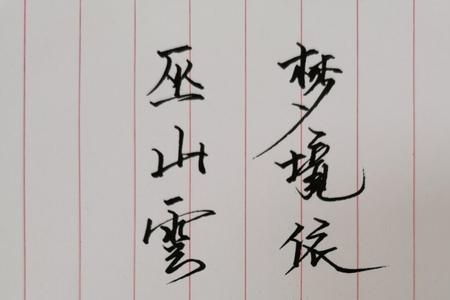 梦境依
巫山雲